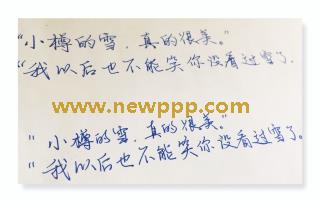 “小樽的雪，真的很美。”
“我以后也不能笑你没看过雪了.
www.newppp.com
“小樽的雪，真的很美。”
“我以后也不能笑你没看过雪了。